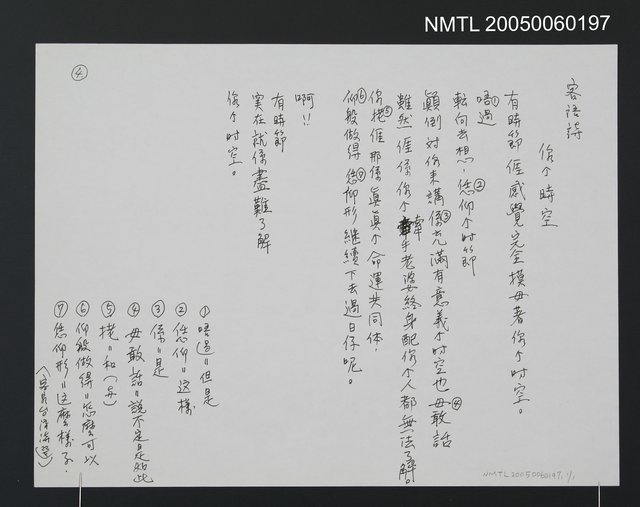 NMTL 20050060197
客語詩
你个時空
有時節𠊎感覺完全摸毋著你个时空。
唔過①
転向去想,恁仰②个时節
顛倒对你来講係③充滿有意義个时空也毋敢話④
雖然𠊎係你个牽手老婆終身配你个人都無法了解。
你摎⑤𠊎那係真真个命運共同体,
仰般做得⑥恁仰形⑦継續下去過日仔呢。
啊!!
有時節
実在就係盡難了解
你个时空。
④
①唔過=但是
②恁仰=这樣
③係=是
④毋敢話=說不定是如此
⑤摎=和(与)
⑥仰般做得=怎麼可以
⑦恁仰形=这麼樣子.
NMTL20050060197, 1/1